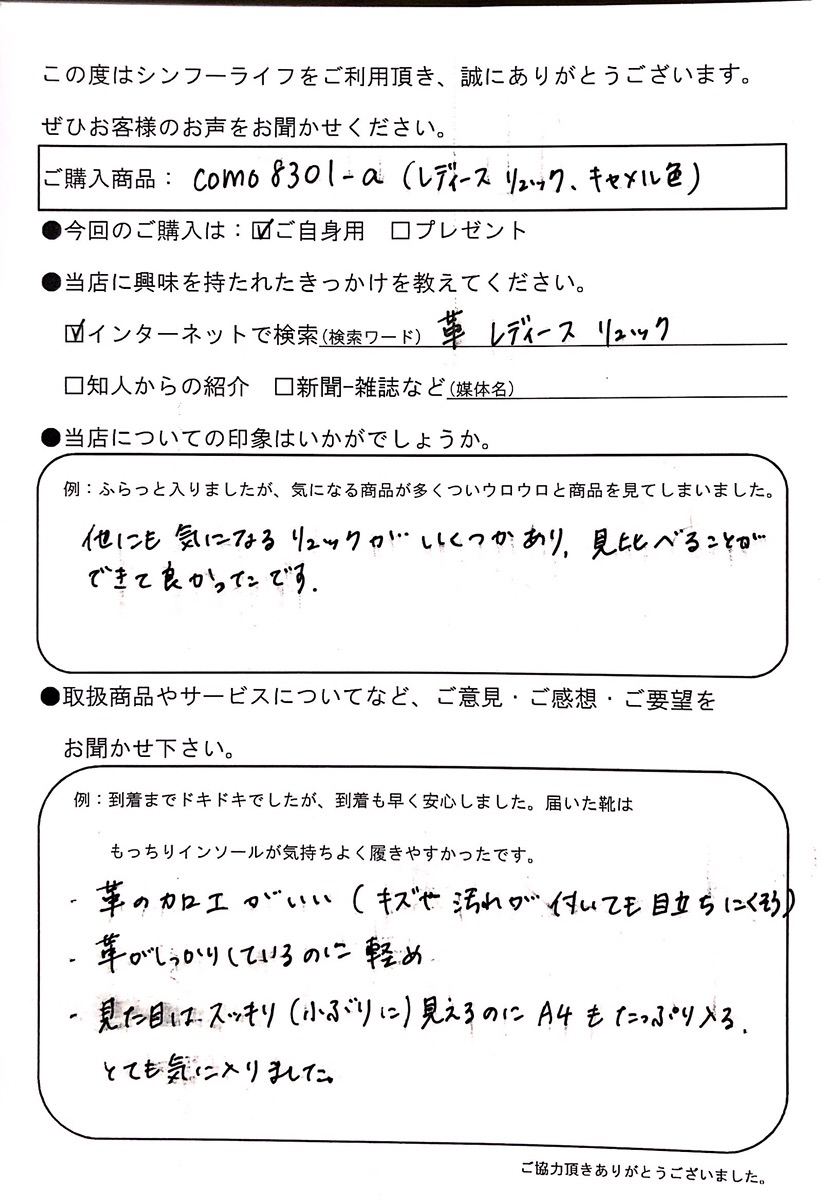 この度はシンフーライフをご利用頂き、誠にありがとうございます。
ぜひお客様のお声をお聞かせください。
ご購入商品： como 8301-a (レディース リュック、キャメル色)
●今回のご購入は：☑ご自身用　□プレゼント
●当店に興味を持たれたきっかけを教えてください。
☑インターネットで検索(検索ワード) 革 レディース リュック
□知人からの紹介　□新聞-雑誌など(媒体名)
●当店についての印象はいかがでしょうか。
例：ふらっと入りましたが、気になる商品が多くついウロウロと商品を見てしまいました。
他にも 気になる リュックが いくつかあり, 見比べることが
できて良かったです.
●取扱商品やサービスについてなど、ご意見・ご感想・ご要望を
お聞かせ下さい。
例：到着までドキドキでしたが、到着も早く安心しました。届いた靴は
もっちりインソールが気持ちよく履きやすかったです。
- 革の加工がいい (キズや汚れが付いても目立ちにくそう)
- 革がしっかりしているのに軽め
- 見た目はスッキリ (小ぶりに) 見えるのに A4もたっぷり入る.
とても気に入りました。
ご協力頂きありがとうございました。